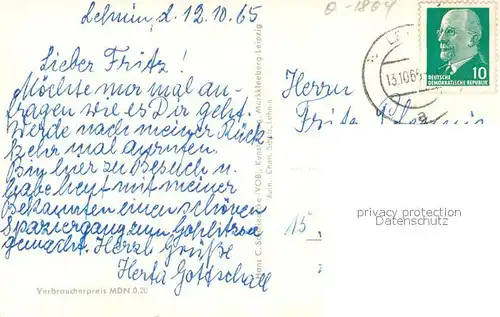 Lehnin, d. 12.10.65
Lieber Fritz!
Möchte nur mal an-
fragen wie es Dir geht.
Werde nach meiner Rück
kehr mal anrufen.
Bin hier zu Besuch u.
habe heut mit meiner
Bekannten einen schönen
Spaziergang zum Gohlitzsee
gemacht. Herzl. Grüße
Herta Gottschall
Verbraucherpreis MDN 0.20
Markkleeberg-Leipzig
Herrn
Fritz
15
13.10.65
DEUTSCHE
DEMOKRATISCHE REPUBLIK
10
privacy protection
Datenschutz